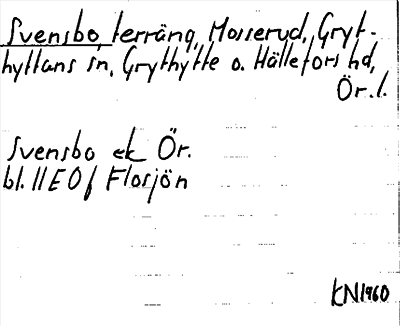 Svensbo, terräng, Mosserud, Gryt-
hyttans sn, Grythytte o. Hällefors hd,
Ör.l.
Svensbo ek Ör.
bl. 11E0f Flosjön
KN1960